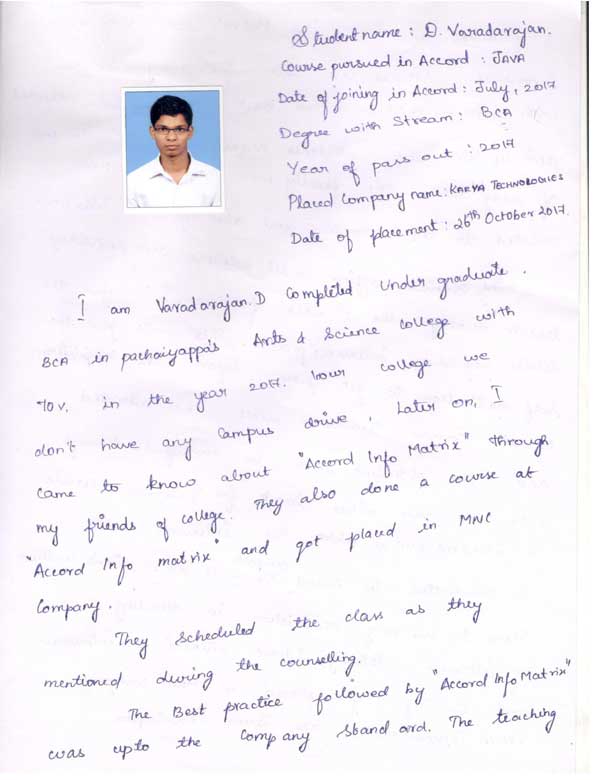 Student name : D. Varadarajan.
Course pursued in Accord : JAVA
Date of joining in Accord : July, 2017
Degree with Stream : BCA
Year of pass out : 2017
Placed Company name : KARYA TECHNOLOGIES
Date of placement : 26th October 2017.
I am Varadarajan.D Completed Under graduate.
BCA in pachaiyappa's Arts & Science College with
70%. in the year 2017. In our college we
don't have any Campus drive. Later on, I
came to know about "Accord Info Matrix" through
my friends of college. They also done a course at
"Accord Info matrix" and got placed in MNC
Company.
They Scheduled the class as they
mentioned during the counselling.
The Best practice followed by "Accord Info Matrix"
was upto the Company Standard. The teaching